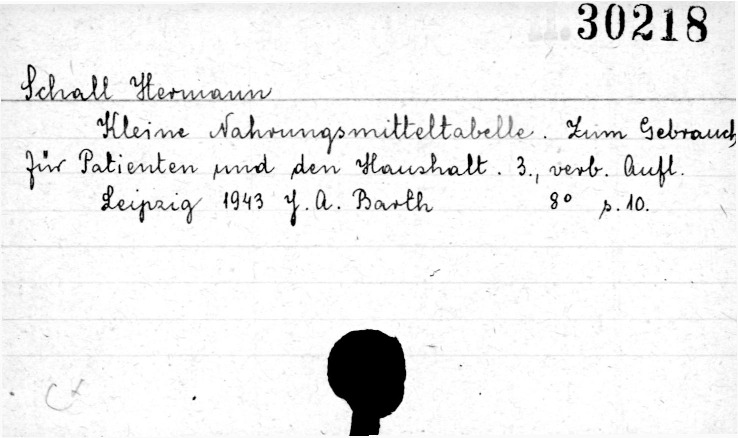 30218
Schall Hermann
Kleine Nahrungsmitteltabelle. Zum Gebrauch
für Patienten und den Haushalt. 3., verb. Aufl.
Leipzig 1943 J. A. Barth 8° s. 10.